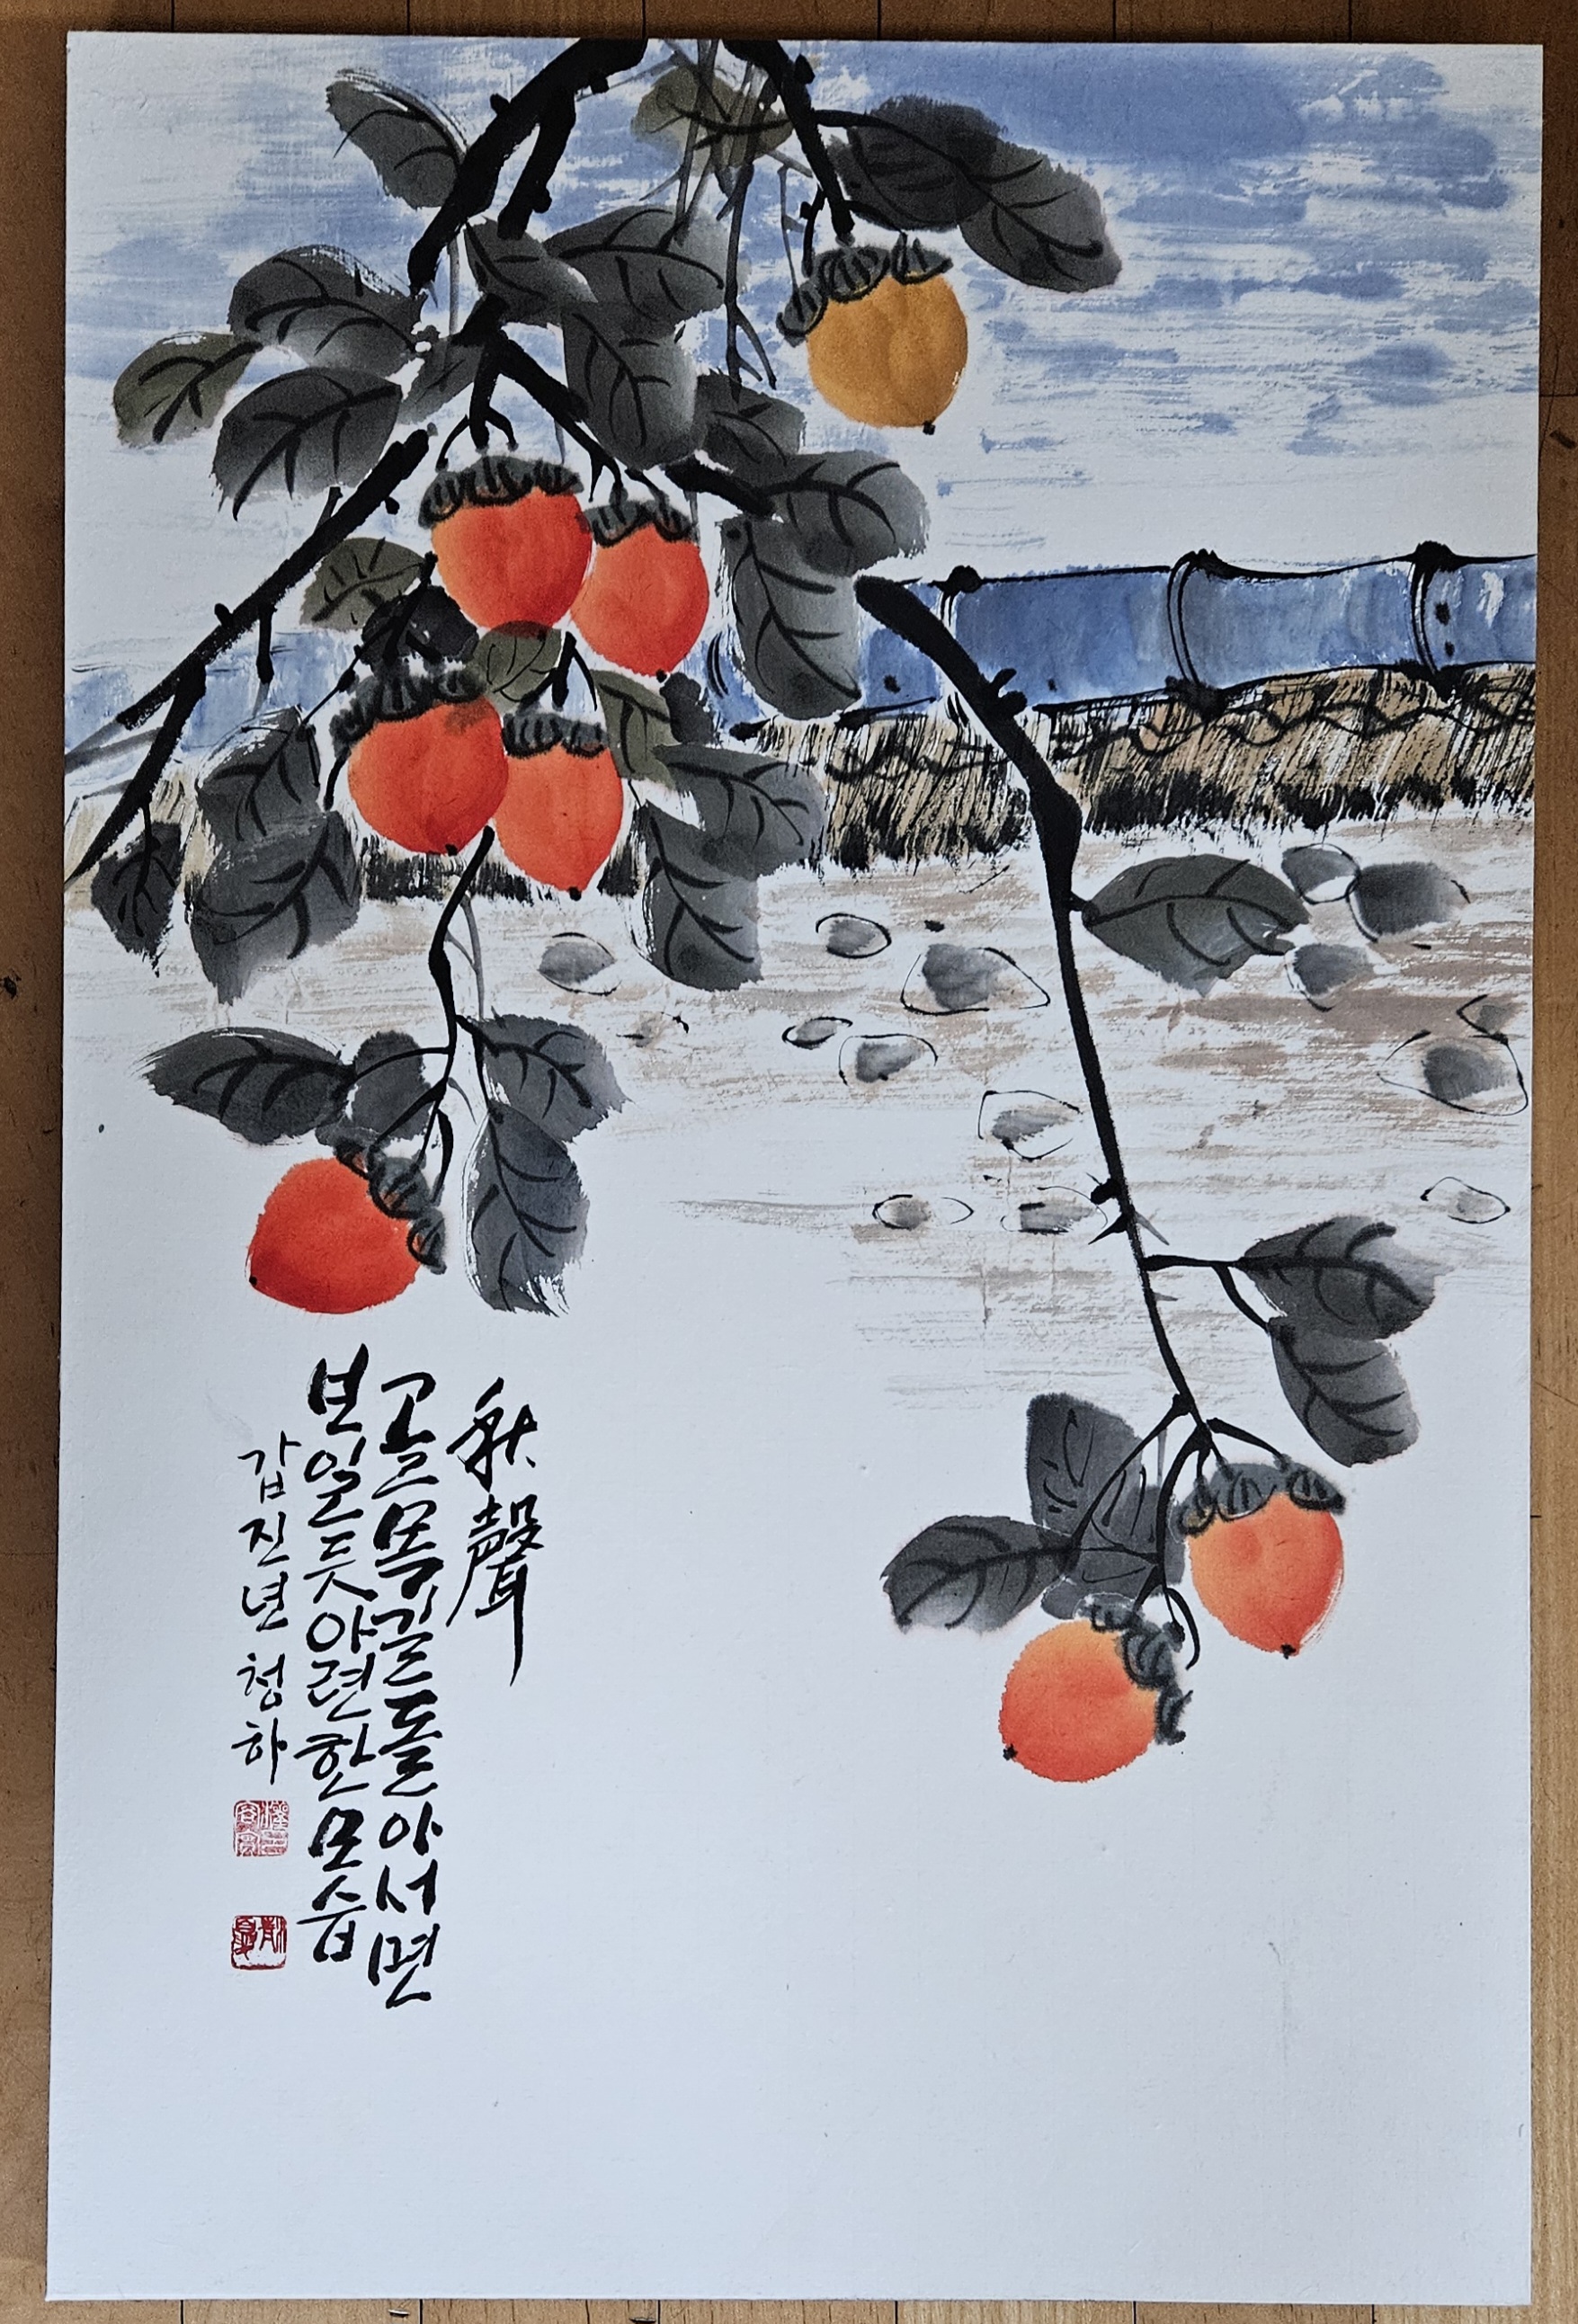 秋聲
골목길돌아서면
보일듯아련한모습
갑진년 청하
靑夏